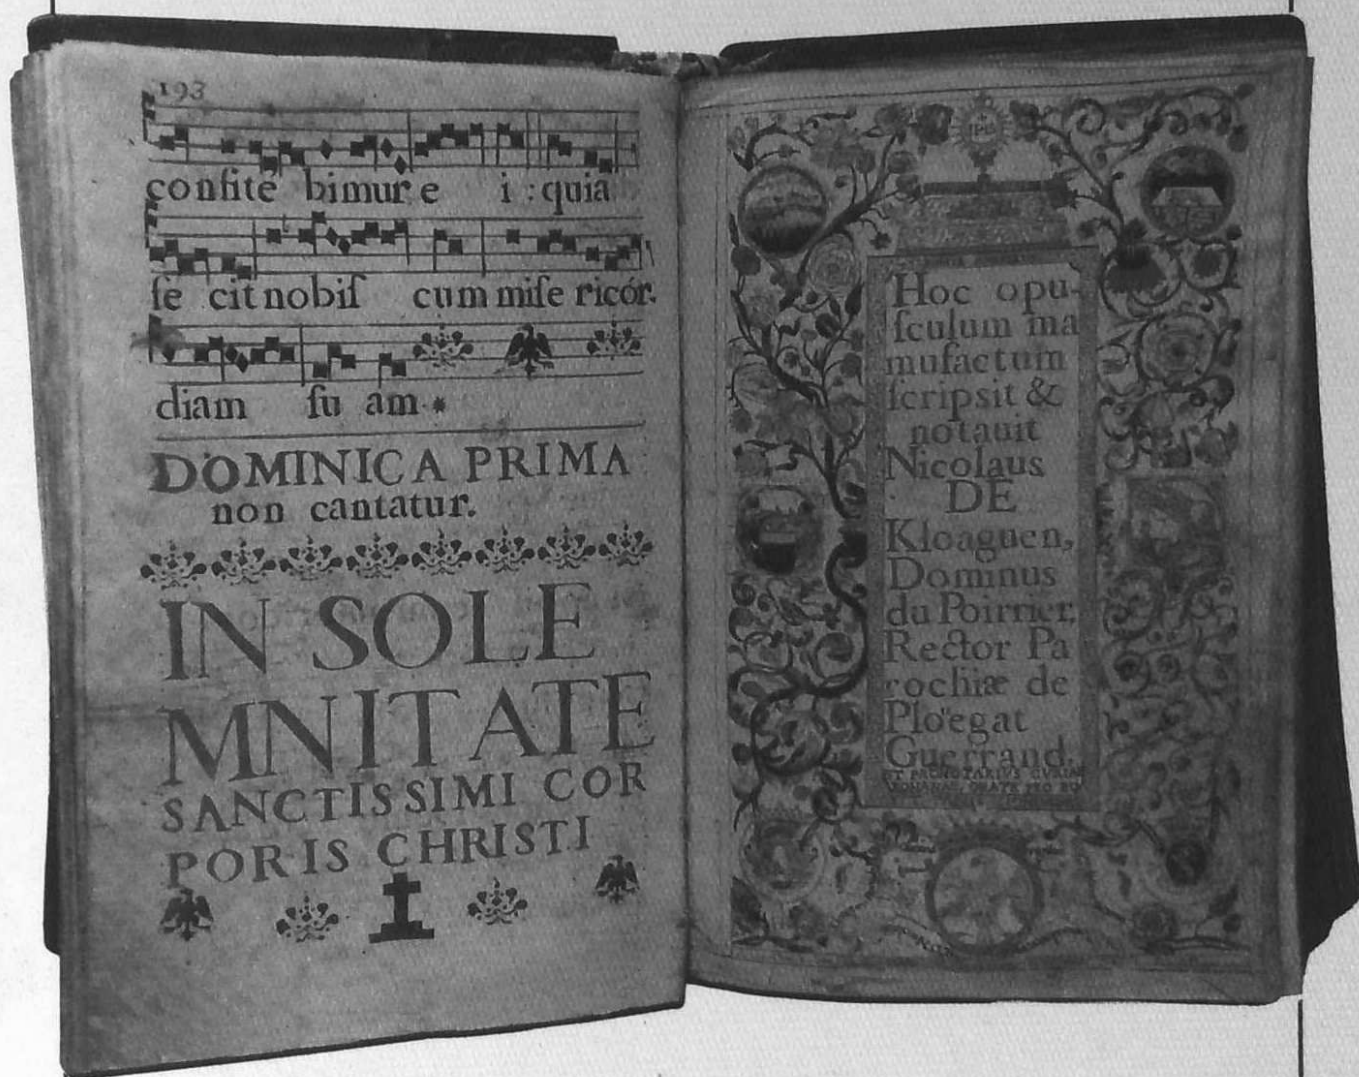 193
confite bimur e i : quia
ſe cit nobiſ cum miſe ricór.
diam ſu am.*
DOMINICA PRIMA
non cantatur.
IN SOLE
MNITATE
SANCTISSIMI COR
PORIS CHRISTI
Hoc opu-
ſculum ma
nufactum
ſcripsit &
notauit
Nicolaus
DE
Kloaguen,
Dominus
du Poirrier,
Rector Pa
rochiæ de
Ploëgat
Guerrand,
ET PRONOTARIVS CURIAE
ROMANAE, ORATE PRO EO